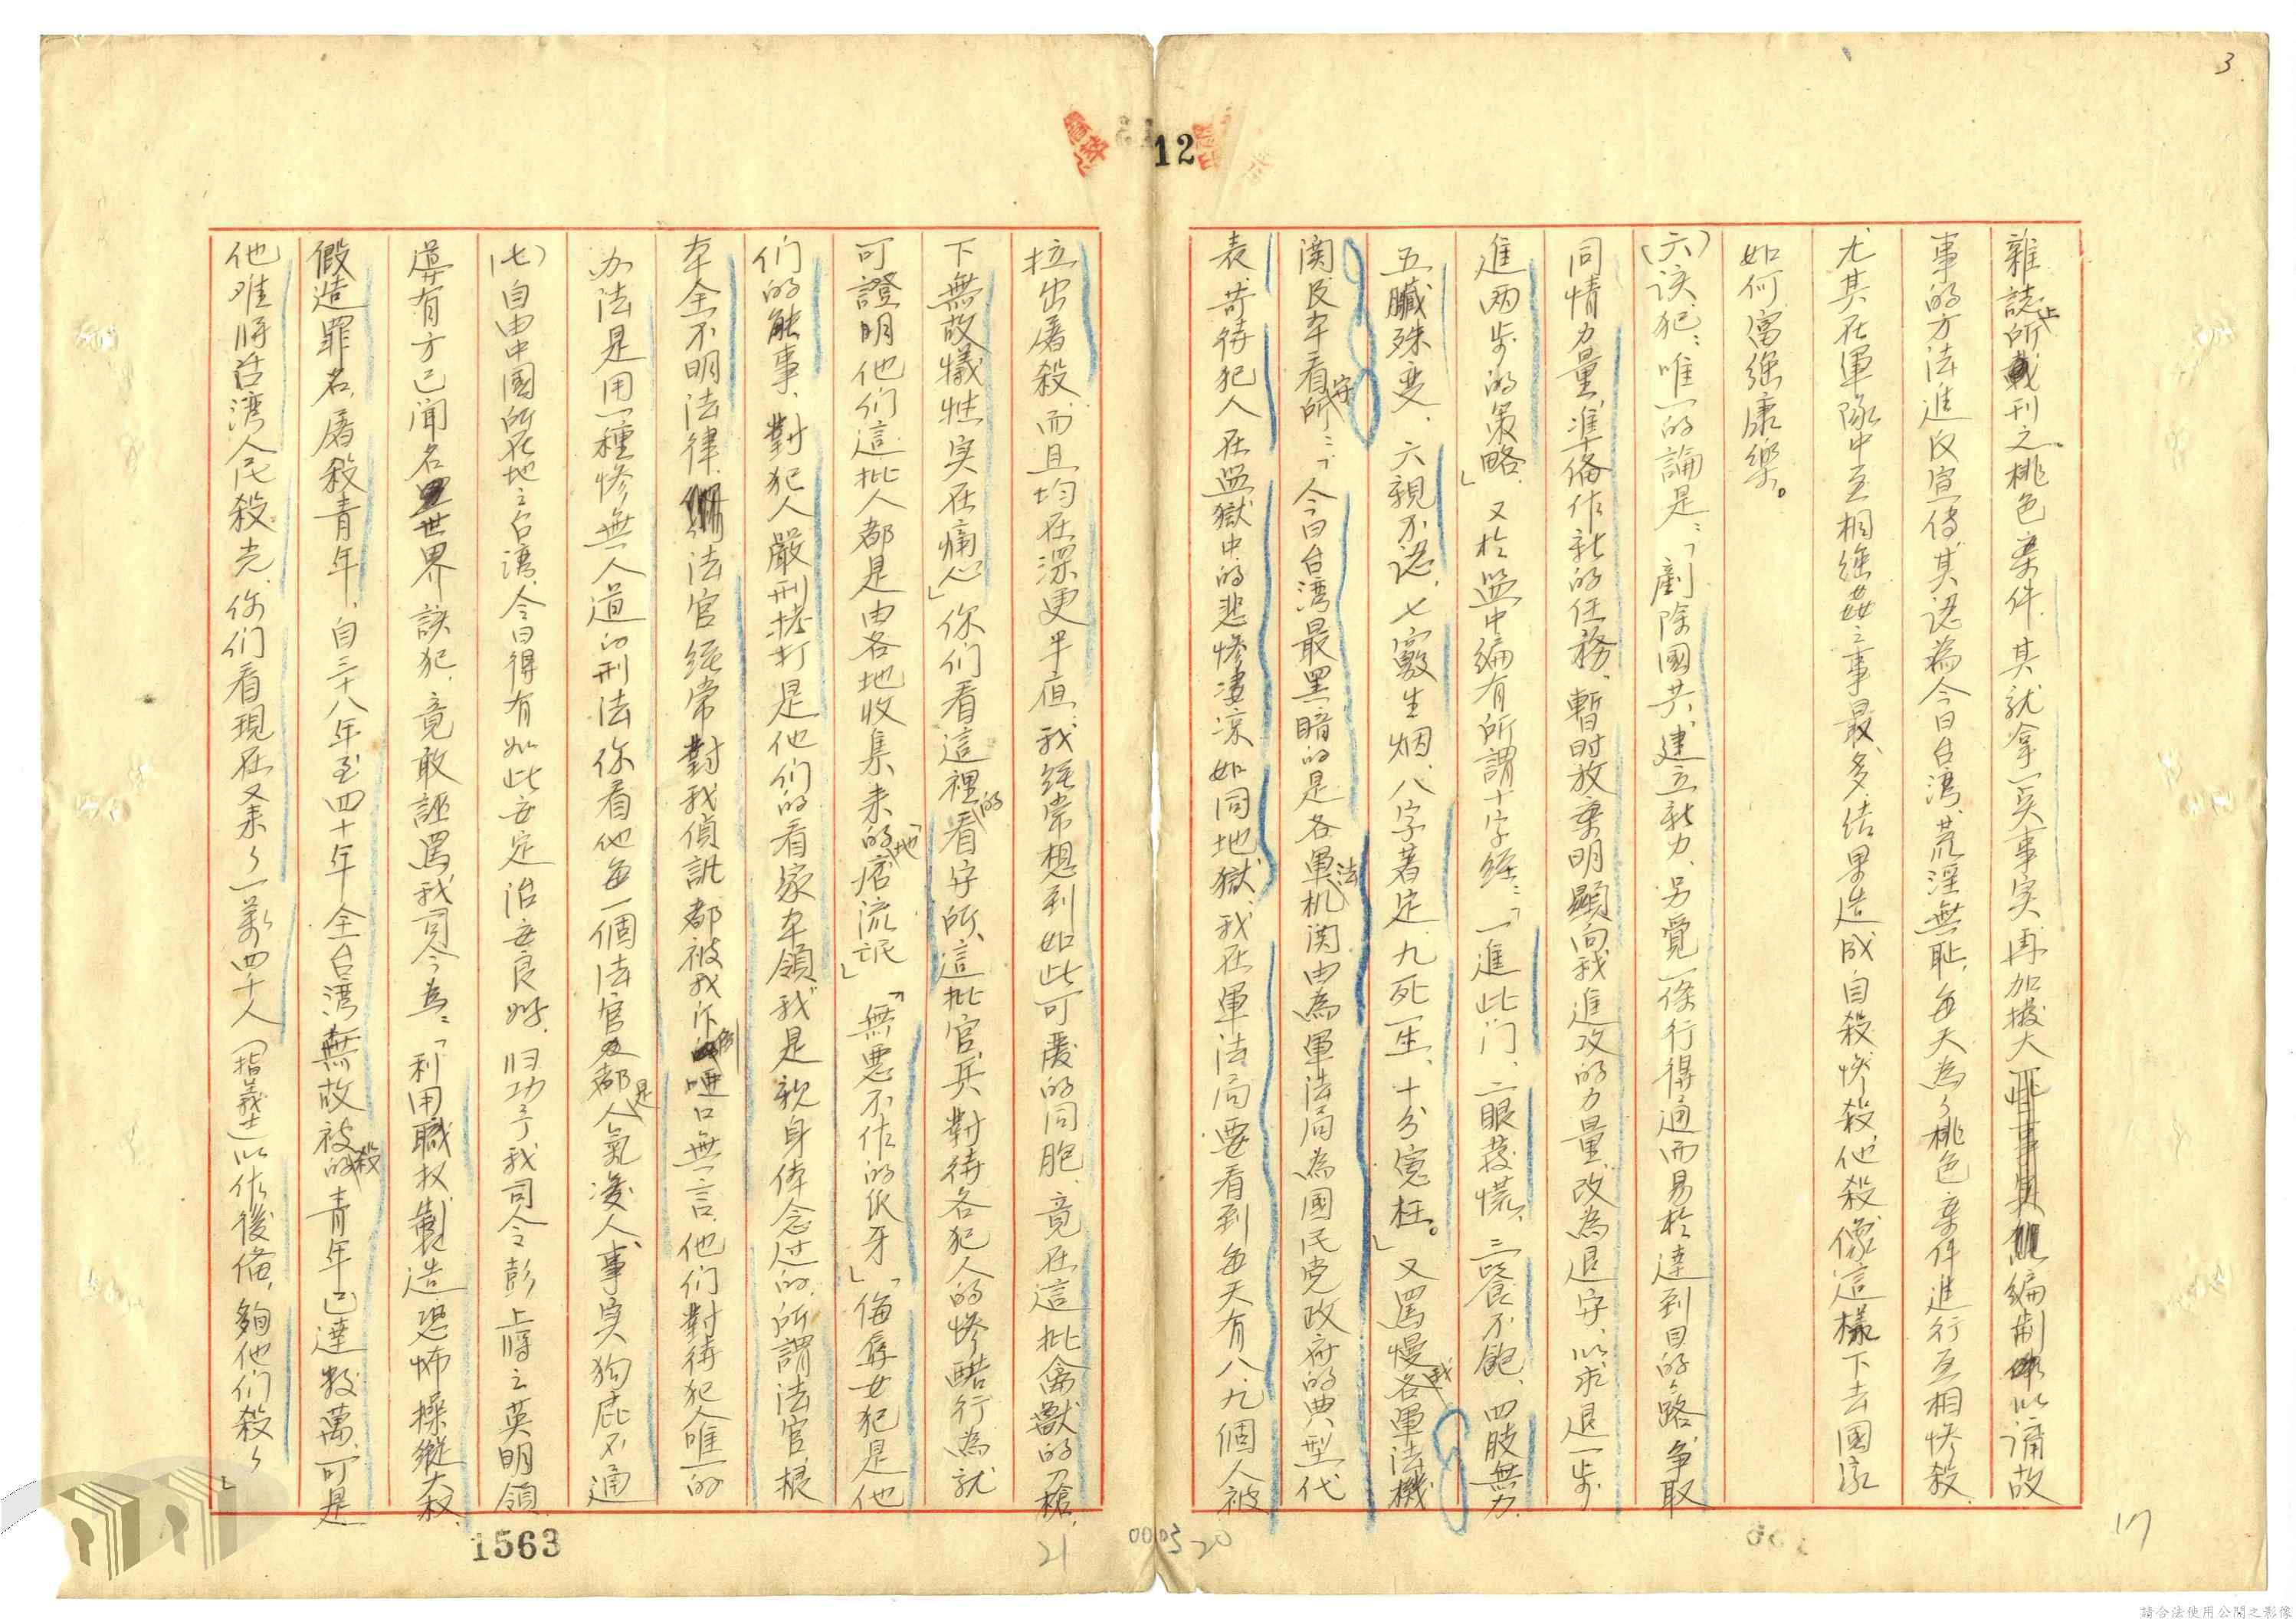 3
12
雜誌上所載刊之桃色案件，其就拿一实事实再加擴大編制以諸故
事的方法進以宣傳，其認為今日台湾荒淫無恥，每天為了桃色案件進行互相慘殺，
尤其在軍隊中互相強姦之事最多，结果造成自殺慘殺他殺，像這樣下去國家
如何富強康樂。
(六)该犯：唯一的論是：「劃除國共，建立新力，另覓一條行得通而易於達到目的之路，争取
同情力量，準俻作新的任務，暫时放棄明顯向我進攻的力量，改為退守，以求退一步
進两步的策略」又於監中編有所謂十字經：「一進此门，二眼發慌，三餐不飽，四肢無力，
五臟殊变，六親不認，七竅生烟，八字著定，九死一生，十分寃枉。」又罵慢我各軍法機
関及本看守所：「今日台湾最黑暗的是各軍法机関由為軍法局為國民党政府的典型代
表，苛待犯人在监獄中的悲惨凄凉如同地獄，我在軍法局要看到每天有八、九個人被
拉出屠殺，而且均在深更半夜，我經常想到如此可爱的同胞，竟在這批禽獸的槍
下無故犧牲，实在痛心」你们看這裡的看守所，這批官兵對待各犯人的惨酷行為就
可證明他们這批人都是由各地收集来的「地痞流氓」「無悪不作的狼牙」「侮辱女犯是他
们的能事，對犯人嚴刑拷打是他们的看家本領，我是親身体念过的，所謂法官，根
本全不明法律，法官經常對我偵訊都被我作啞口無言，他们對待犯人唯一的
办法是用一種惨無人道的刑法，你看他每一個法官都是人氣凌人，事实狗屁不通
(七)自由中國所在地之台湾，今日得有如此安定治安良好，归功于我司令彭上將之英明領
導有方已闻名世界，該犯，竟敢誣罵我司令為：「利用職权製造恐怖操縱大权，
假造罪名，屠殺青年，自三十八年至四十年全台湾無故被殺的青年已達数萬，可是
他难將台湾人民殺光，你们看現在又来了一萬四千人（指義士）以作後俻，夠他们殺了」
1563
21
0003
20
17
請合法使用公開之影像